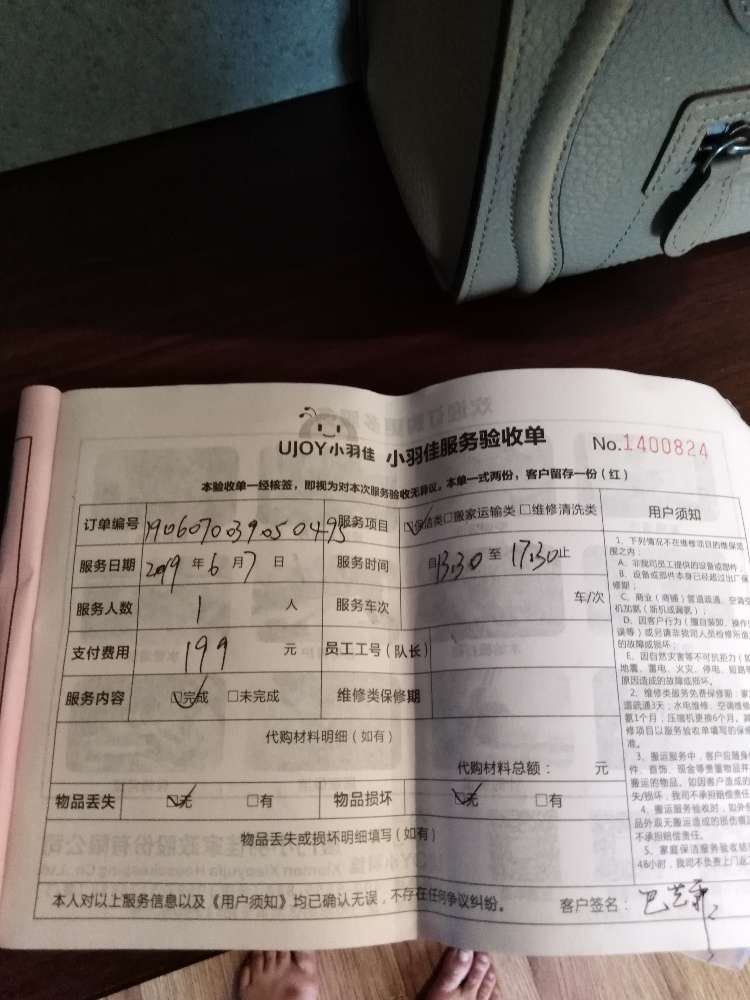 UJOY小羽佳 小羽佳服务验收单 No.1400824
本验收单一经核签，即视为对本次服务验收无异议。本单一式两份，客户留存一份（红）
订单编号 190607039050495 服务项目 ☑保洁类□搬家运输类□维修清洗类 用户须知
服务日期 2019年6月7日 服务时间 自13:30至17:30止
服务人数 1 人 服务车次 车/次
支付费用 199 元 员工工号（队长）
服务内容 ☑完成 □未完成 维修类保修期
代购材料明细（如有）
代购材料总额： 元
物品丢失 ☑无 □有 物品损坏 ☑无 □有
物品丢失或损坏明细填写（如有）
本人对以上服务信息以及《用户须知》均已确认无误，不存在任何争议纠纷。 客户签名：
1、下列情况不在维修项目的维保范
围之内：
A、非我司员工提供的设备或部件；
B、设备或部件本身已经超过出厂保
修期；
C、商业（商铺）管道疏通、空调空
机加氨（新机或漏氨）；
D、因客户行为（擅自装卸、操作失
误等）或另请非我司人员检修所造
的故障或损坏；
E、因自然灾害等不可抗拒力（如
地震、雷电、火灾、停电、短路等
原因造成的故障或损坏。
2、维修类服务免费保修期：
道疏通3天；水电维修、空调维修
氨1个月；压缩机更换6个月。其
修项目以服务验收单填写的保修
准。
3、搬运服务中，客户应随身
件、首饰、现金等贵重物品并
搬运的物品。如因客户造成的
失/损坏，我司不承担赔偿责任
4、搬运服务验收时，如外包
品外观无搬运造成的损伤痕迹
不承担赔偿责任。
5、家庭保洁服务验收结束
48小时，我司不负责上门返工